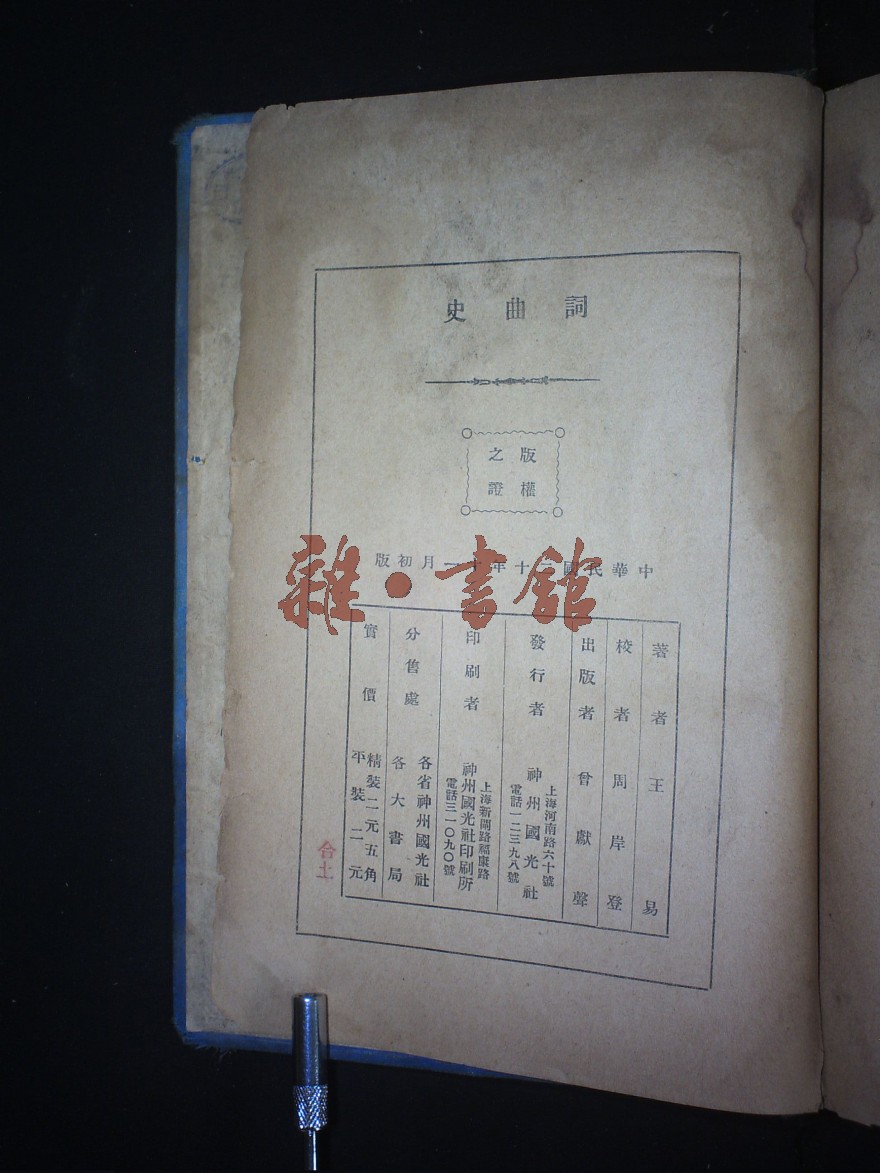 詞曲史
版權
之證
中華民國二十年十一月初版
雜·書館
著者 王易
校者 周岸登
出版者 曾獻聲
發行者 神州國光社
上海河南路六十號
電話一二三九八號
印刷者 神州國光社印刷所
上海新閘路福康路
電話三一〇九〇號
分售處 各省神州國光社
各大書局
實價 精裝二元五角
平裝二元